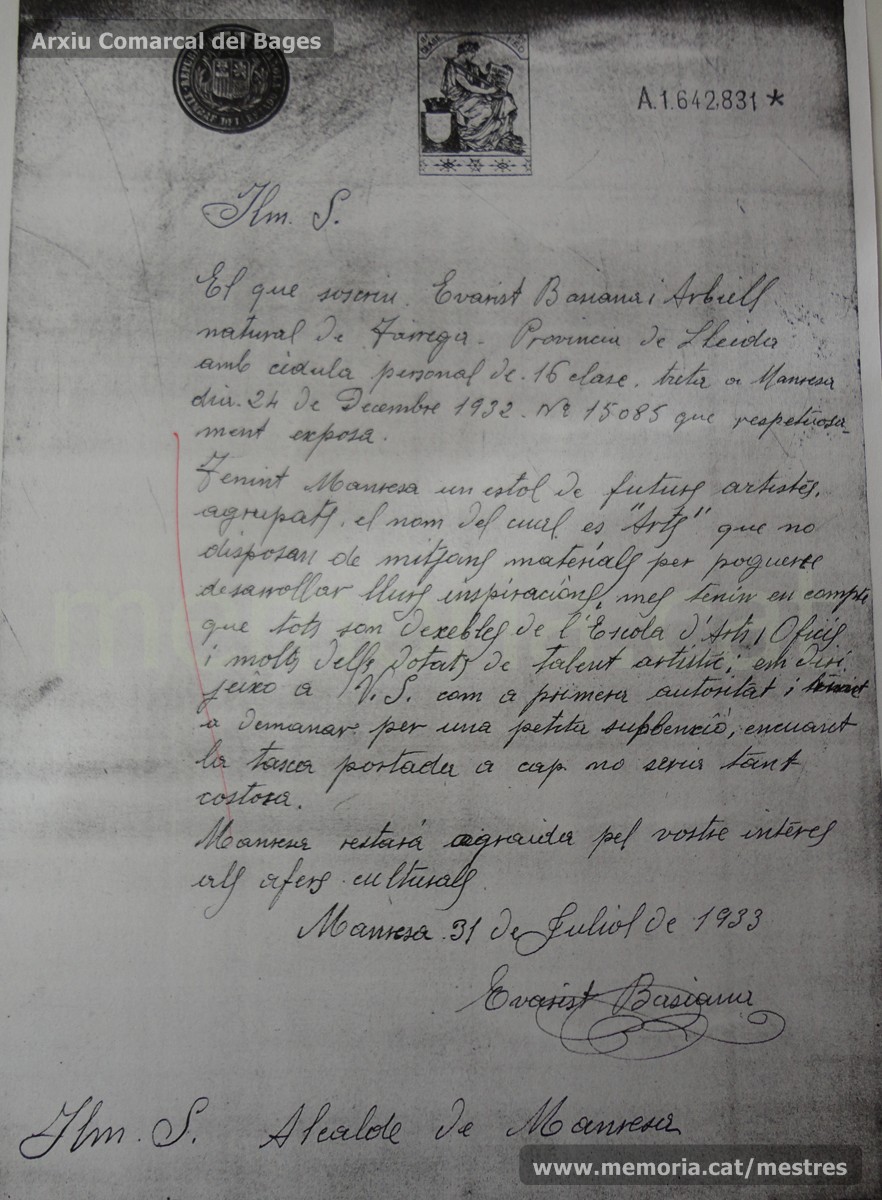 Arxiu Comarcal del Bages
A.1.642,831 *
Ilm. S.
El que soscriu. Evarist Basiana i Arbiell
natural de Tàrrega - Provincia de Lleida
amb cèdula personal de 16 clase, treta a Manresa
dia 24 de Decembre 1932 - Nº 15085 que respetuosa-
ment exposa.
Tenint Manresa un estol de futurs artistes,
agrupats, el nom del cual es "Arts" que no
disposan de mitjans materials per poguerse
desarrollar llurs inspiraciòns, mes tenin en compte
que tots son dexebles de l'Escola d'Arts i Oficis
i molts dells dotats de talent artistic; em diri
jeixo a V.S. com a primera autoritat i
a demanar per una petita subbenciò, encuant
la tasca portada a cap no seria tant
costosa.
Manresa restarà agraida pel vostre interes
als afers culturals
Manresa 31 de Juliol de 1933
Evarist Basiana
Ilm. S. Alcalde de Manresa
www.memoria.cat/mestres